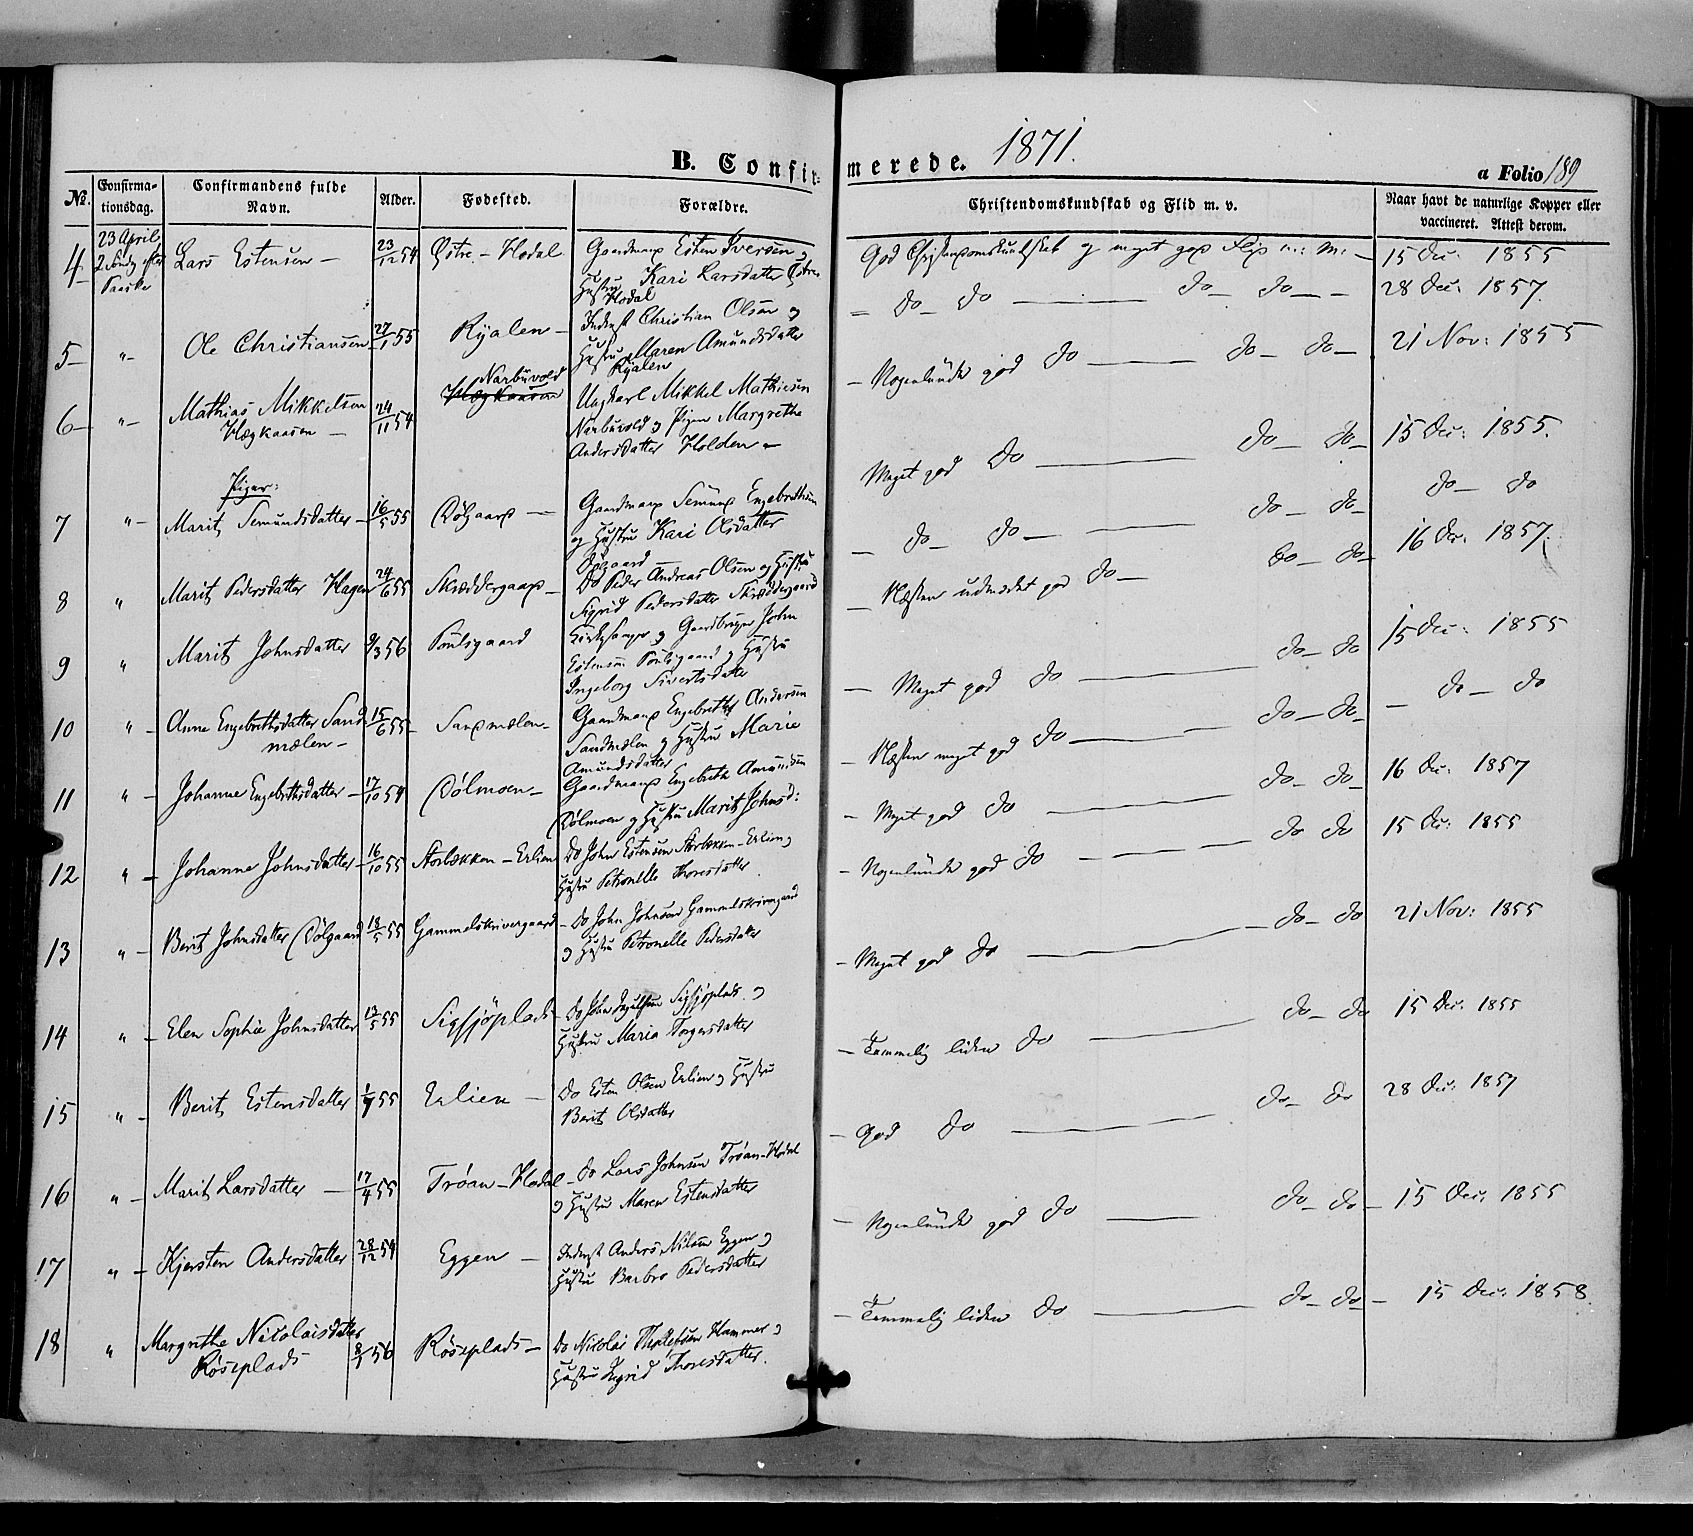 B. Confirmerede. 1871.
a Folio 189
No. Confirmationsdag. Confirmandens fulde Navn. Alder. Fødested. Forældre. Christendomskundskab og Flid m. v. Naar havt de naturlige Kopper eller vaccineret. Attest derom.
4 23 April 2 Søndg efter Paaske Lars Estensen – 23/12 54 Østre – Hodal Gaardmand Esten Iversen og
Hustru Kari Larsdatter Østre
Hodal
God Christendomskundskab og meget god Flid m: m: – 15 Dec: 1855
5 "- Ole Christiansen 27/1 55 Ryalen – Inderst Christian Olsen og
Hustru Maren Amundsdatter
Ryalen
– do – do – do – do – – 28 Dec: 1857.
6 – "- Mathias Mikkelsen
Hægkaasen –
24/11 54 Narbuvold
Hægkaasen
Ungkarl Mikkel Mathiesen
Narbuvold og Pigen Margrethe
Andersdatter Holden –
– Nogenlunde god do – do – do – 21 Nov: 1855
Piger:
7 "- Marit Semundsdatter – 16/5 55 Dølgaard – Gaardmand Semund Engebrethsen
og Hustru Kari Olsdatter
Dølgaard
Meget god do – do – do – 15 Dec: 1855.
8 " Marit Pedersdatter Hagen 24/6 55 Skræddergaard – Do Peder Andreas Olsen og Hustru
Sigrid Pedersdatter Skræddergaard
– do – do – do – do – do – do
9 " Marit Johnsdatter 9/3 56 Poulsgaard Kirkesanger og Gaardbruger John
Estensen Poulsgaard og Hustru
Ingeborg Sivertsdatter
– Næsten udmærket god do – do – do – 16 Dec. 1857.
10 "- Anne Engebrethsdatter Sand-
mælen –
15/6 55 – Sandmælen – Gaardmand Engebreth Andersen
Sandmælen og Hustru Marie
Amundsdatter
– Meget god do – do – do 15 Dec: 1855
11 "- Johanne Engebrethsdatter – 17/10 54 Dølmoen – Gaardmand Engebreth Amundsen
Dølmoen og Hustru Marit Johnsd:
– Næsten meget god do – do – do – – do – do
12 "- Johanne Johnsdatter – 16/10 55 Storbækken – Erlien Do John Estensen Storbækken – Erlien og
Hustru Petronelle Thoresdatter
– Meget god do – do – do – 16 Dec: 1857
13 "- Berit Johnsdatter Dølgaard 18/5 55 Gammelskrivergaard – Do John Johnsen Gammelskrivergaard
og Hustru Petronelle Pedersdatter
– Nogenlunde god do – do do 15 Dec: 1855
14 "- Elen Sophie Johnsdatter 17/5 55 Sigsjöplads – Do John Sigsjöplads og
Hustru Maria Torgersdatter
– Meget god do – do – do 21 Nov: 1855
15 "- Berit Estensdatter 1/7 55 Erlien – Do Esten Olsen Erlien og Hustru
Berit Olsdatter
– Temmelig liden do – do – do 15 Dec: 1855
16 "- Marit Larsdatter – 17/4 55 Trøan – Hodal – Do Lars Johnsen Trøan – Hodal
og Hustru Maren Estensdatter
– God do – do – do 28 Dec: 1857
17 "- Kjersten Andersdatter 28/12 54 Eggen – Inderst Anders Nilsen Eggen og
Hustru Barbro Pedersdatter
– Nogenlunde god do – do – do – 15 Dec: 1855
18 " Margrethe Nicolaisdatter
Röseplads
8/1 56 Röseplads – Do Nicolai Hammer og
Hustru Ingrid Thoresdatter.
– Temmelig liden do – do – do – 15 Dec: 1858.